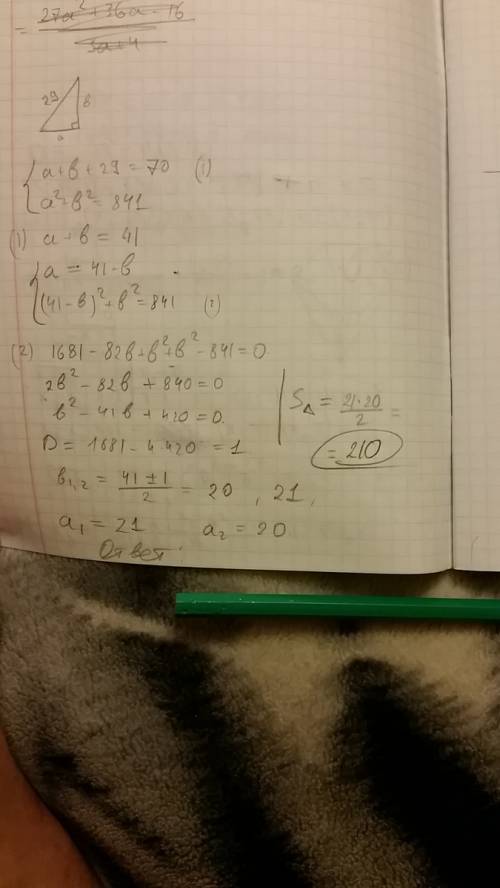 = 27a² + 36a - 16
3a+4
29 в
a
a+в+29=70 (1)
a²+в²=841
(1) a+в=41
a=41-в
(41-в)²+в²=841 (2)
(2) 1681-82в+в²+в²-841=0
2в²-82в+840=0
в²-41в+420=0
D=1681-4·420=1
в₁,₂ = 41±1 / 2 = 20, 21,
a₁=21 a₂=20
Ответ:
S△ = 21·20 / 2 =
= 210